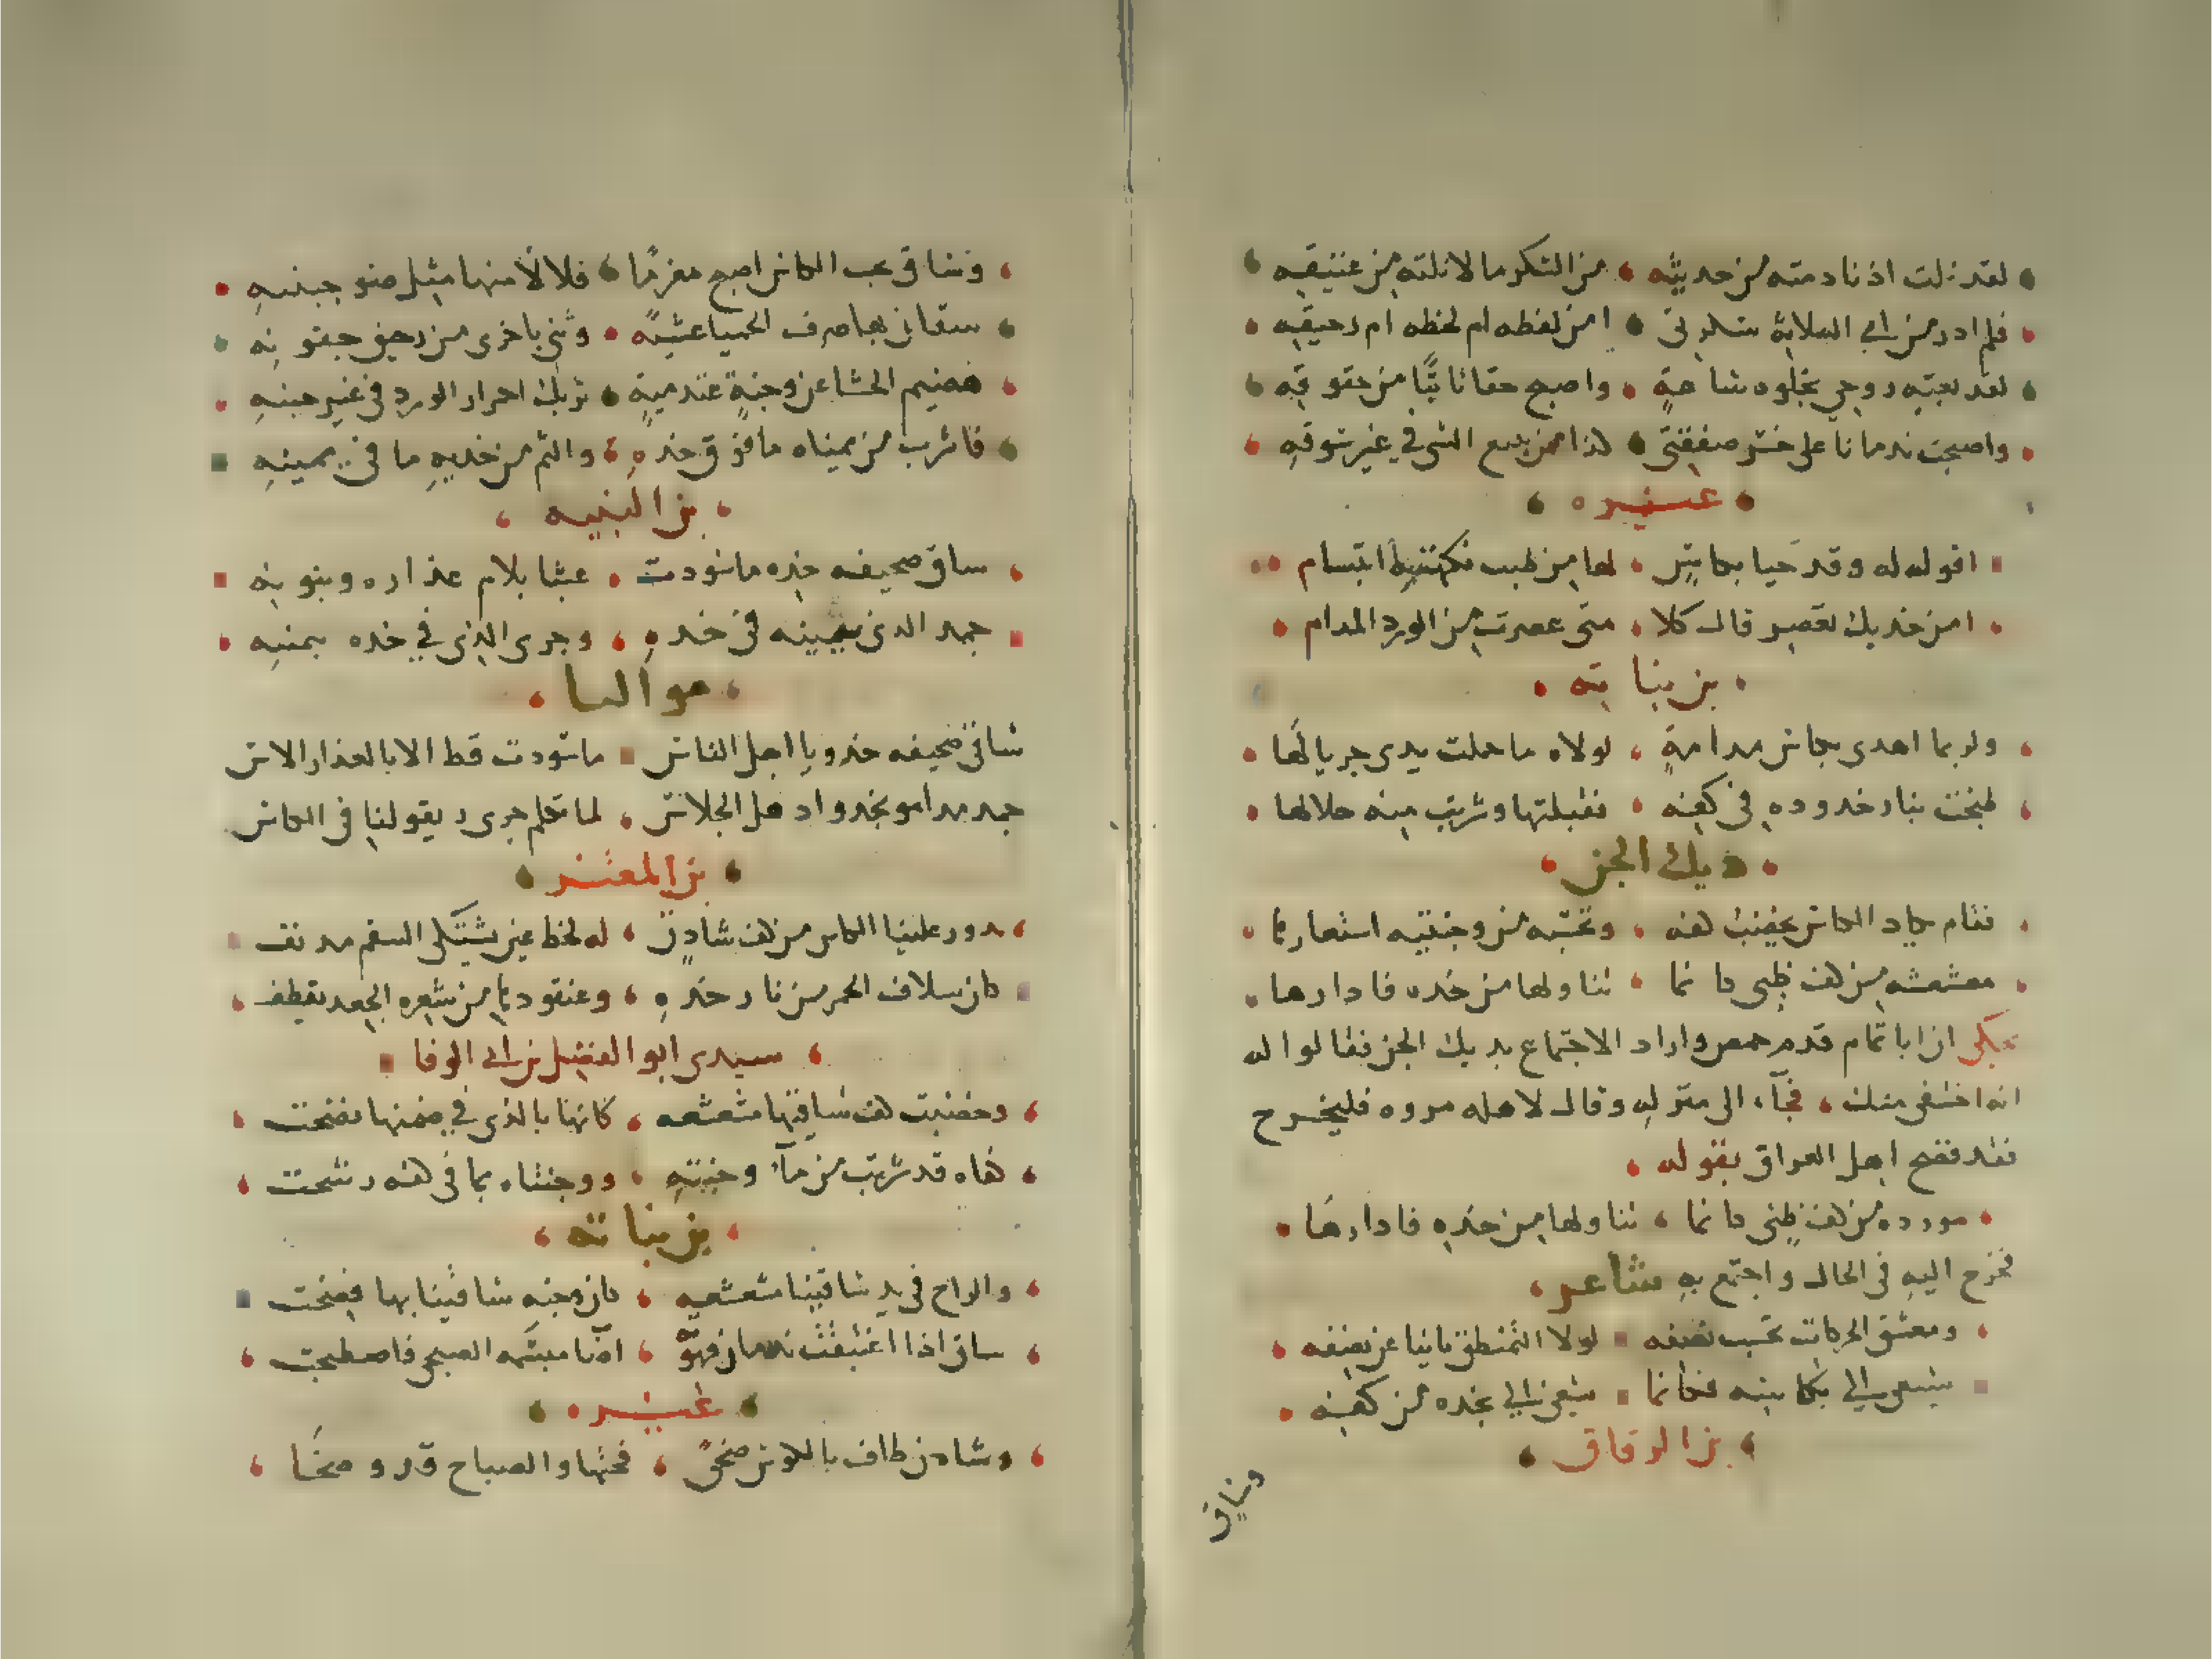 لقد نلت اذ نادمته من حديثه من السكر ما لا نلته من عتيقه
فلم ادر من اي السلافة سكرتي امن لفظه ام لحظه ام رحيقه
لقد بعته روحي بخلوة ساعة واصبح حقا ثابتا من حقوقه
واصبحت ندمانا على خسر صفقتي كذا من يبيع الشي في غير سوقه
غيره
اقول له وقد حيا بكاس لها من طيب نكهته ابتسام
امن خديك تعصر قال كلا متى عصرت من الورد المدام
بن نباته
ولربما اهدى بكاس مدامة لولاه ما حملت يدى جريالها
طبخت بنار خدوده في كفه فقبلتها وشربت منه حلالها
ديك الجن
فقام يكاد الكاس يخضب كفه وتحسبه من وجنتيه استعارها
مشعشعه من كف ظبي كانما تناولها من خده فادارها
يحكى ان ابا تمام قدم حمص واراد الاجتماع بديك الجن فقالوا له
انه اختفى منك فجآء الى منزله وقال لاهله مروه فليخرح
فقد فتح اهل العراق بقوله
مورده من كف ظبي كانما تناولها من خده فادارها
فخرج اليه في الحال واجتمع به شاعر
ومعشق الحركات تحسب نصفه لولا التمنطق بائنا عن نصفه
يسعى الي بكاسه فكانما يسعى الي بخده من كفه
بن الزقاق
وساق
وساق يحب الكاس اصبح مغرما فلالأ منها مثل ضو جبينه
سقاني بها صرف الحميا عشية وثنى باخرى من رحيق جفونه
هضيم الحشا عن وجنة عندمية تريك احمرار الورد في غير حينه
فاشرب من يمناه ما فوق خده والثم من خديه ما في يمينه
بن النبيه
ساق صحيفه خده ما سودت عبثا بلام عذاره وبنونه
جمد الذى بيمينه في خده وجرى الذى في خده بيمينه
مواليا
ساقي صحيفه خدو يا اهل الناس ما سودت قط الا بالعذار الاس
جمد مدامو بخدو اد هل الجلاس لما تكلم جرى ريقو لنا في الكاس
بن المعتز
يدور علينا الكاس من كف شادن له لحظ عين يشتكى السقم مدنف
كان سلاف الخمر من نار خده وعنقودها من شعره الجعد يقطف
سيدى ابو الفضل بن ابي الوفا
وخضبت كف ساقيها مشعشعه كانها بالذى في ضمنها نضحت
فاه قد شربت من مآء وجنته ووجنتاه بما في كفه رشحت
بن نباته
والراح في يد ساقينا مشعشعه كان وجنه ساقينا بها فضحت
ساق اذا اغتبقت ندمان قهوته اضا مبسمه الصبحي فاصطبحت
غيره
وشادن طاف بالكوس ضحى فحثها والصباح قد وضحا